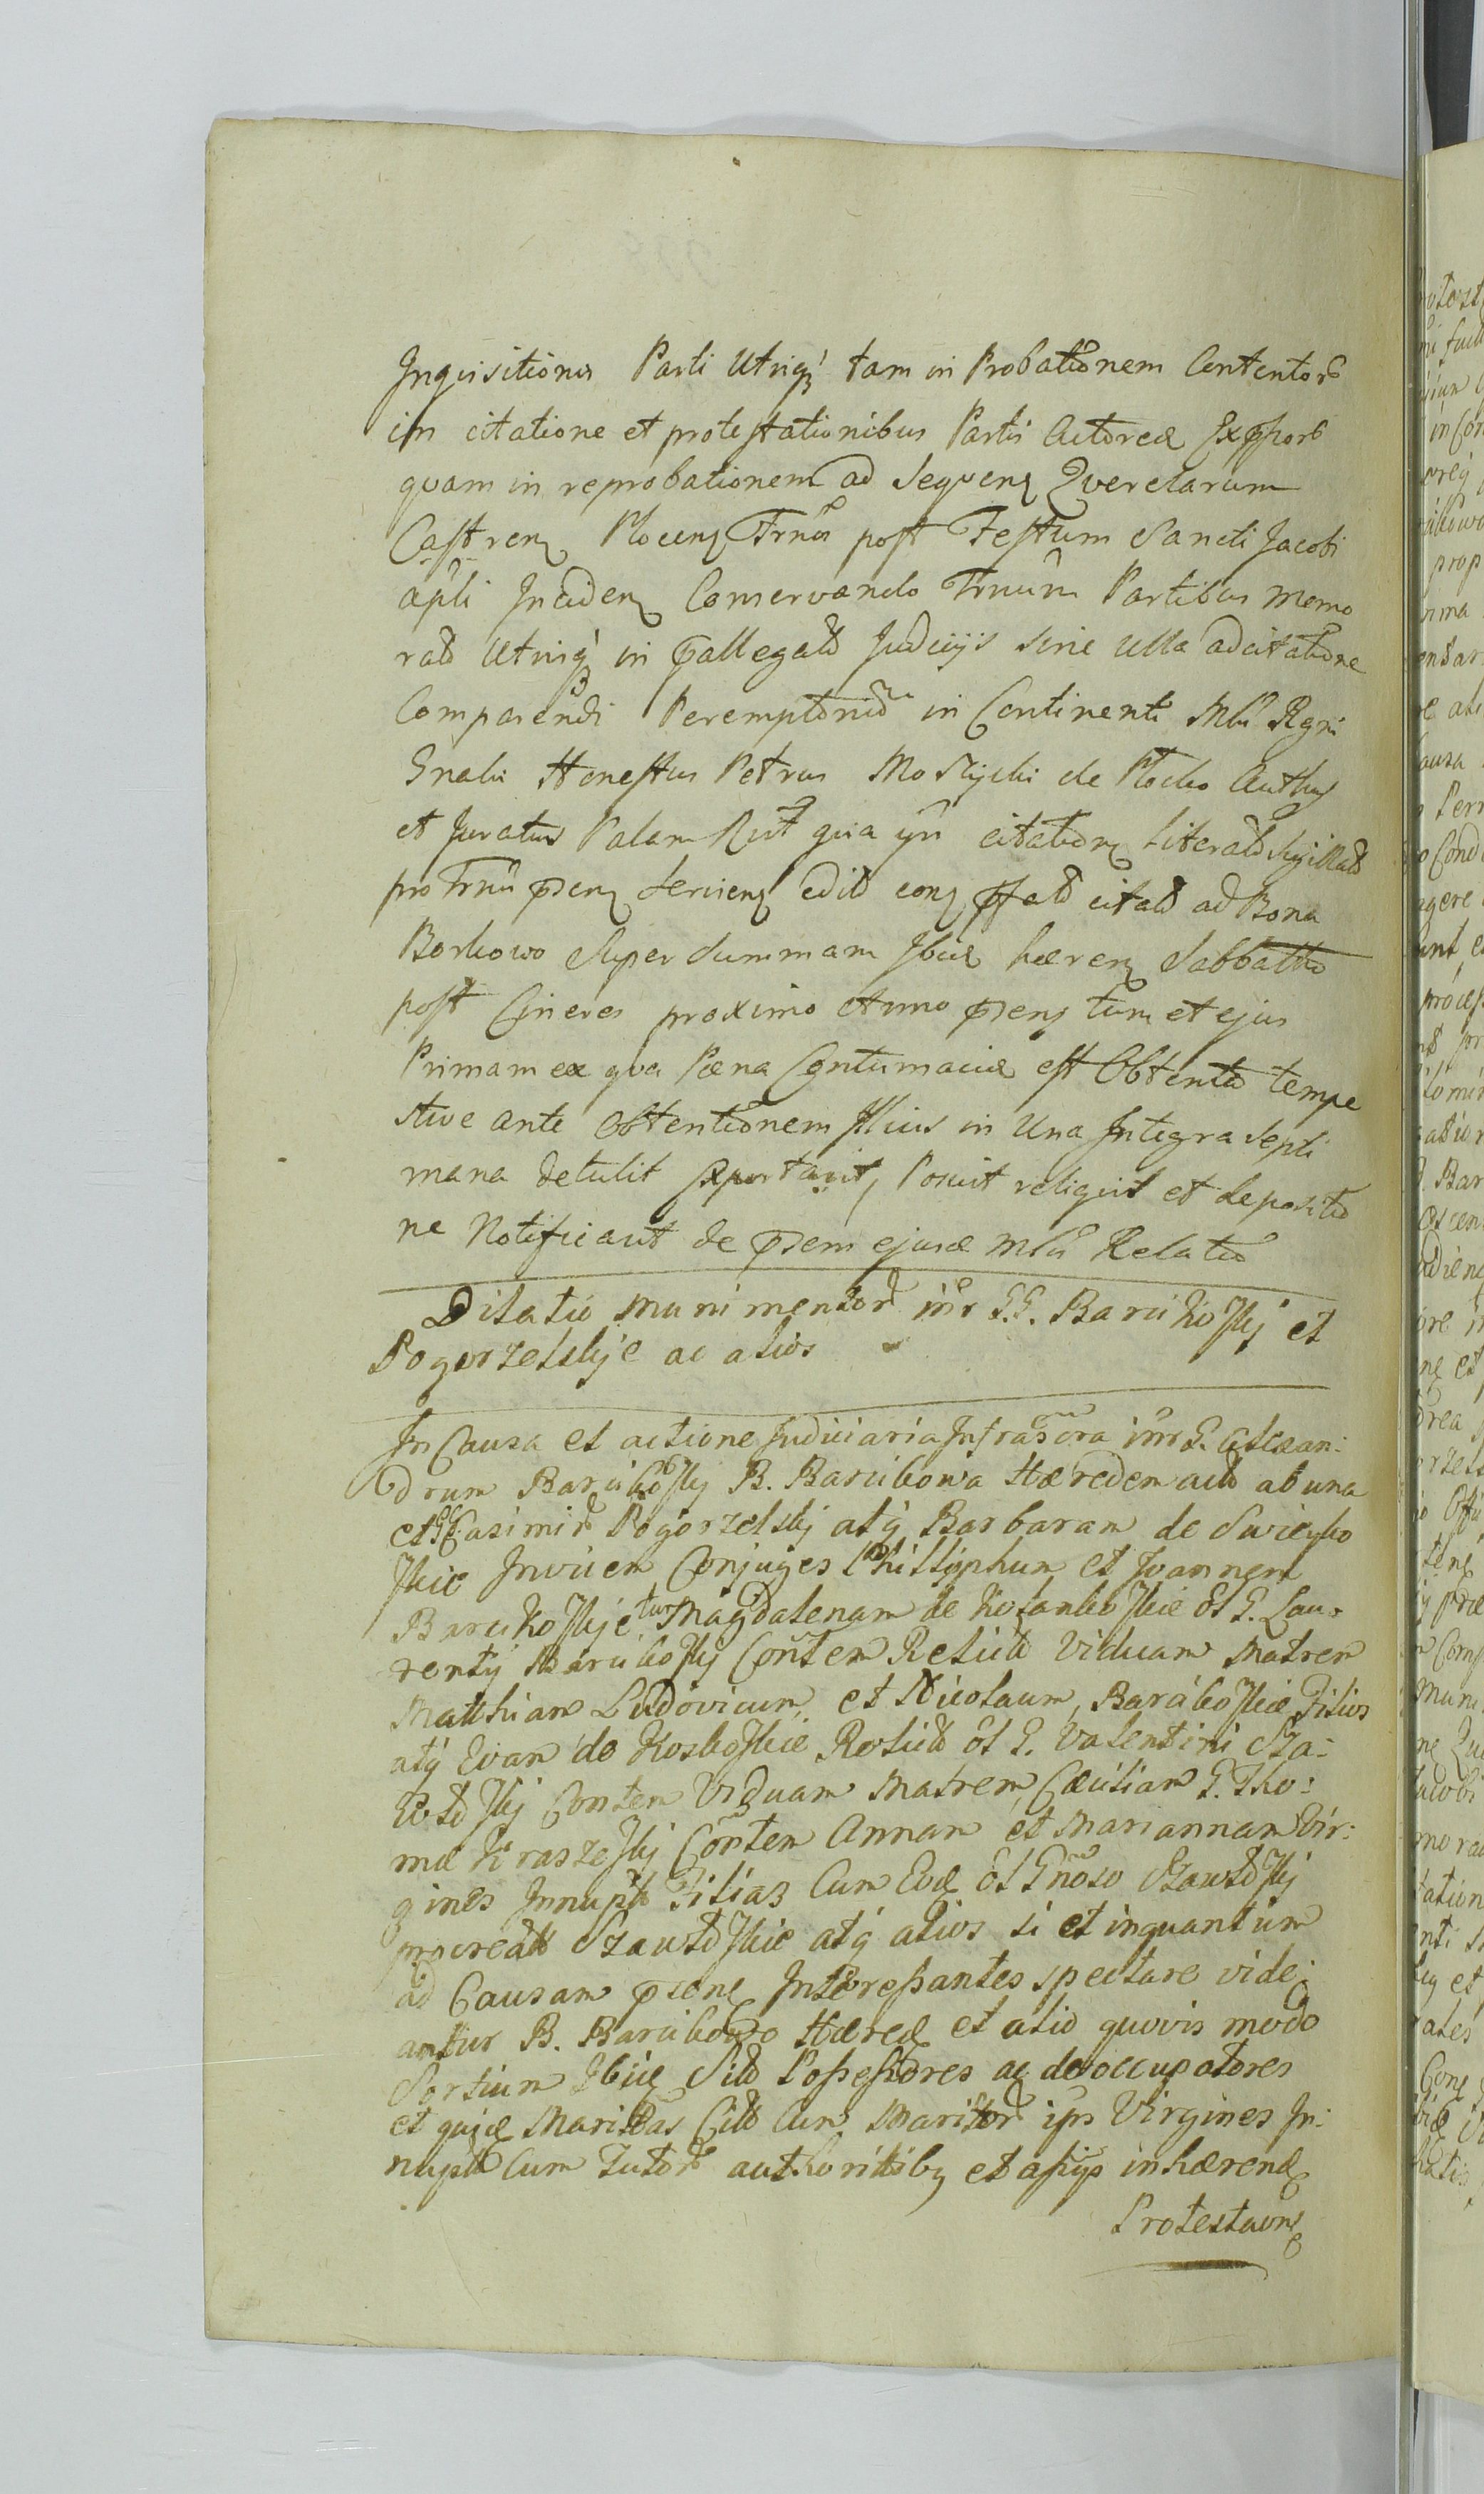 Inquisitiones Parti Utriq' tam in Probationem Contentor
in citatione et protestationibus Partis Actoreæ Expssor
quam in reprobationem ad Sequenq Querelarum
Castrenq Plocenq Trnos post Festum Sancti Jacobi
apli Incidenq Conservando Trnum Partibus memo
rat Utrisq in pallegat Judicijs sine ulla adcitatione
Comparendi Peremptorie in Continenti Mlis Regni
Gnalis Honestus Petrus Moszycki de Plocko Auth
et Juratus Palam Rect quia ijs citationq Literat Sigillat
pro Trno psenq Servienq edit eonq pffat citat ad Bona
Borkowo Super Summam Ibid hærenq Sabbatho
post Cineres proximo Anno psenq tum et ejus
Primam ex qua Pœna Contumaciæ est Obtenta tempe
stive ante Obtentionem Illius in Una Integra Septi
mana detulit exportavit, Posuit reliquit et depositio
ne Notificavit de psem ejusd Mlis Relatio
Dilatio munimentor intr G.G. Barcikoskj et
Pogorzelskje ac alios
In Causa et actione Judiciaria Infrascra intr G. Alexan:
drum Barcikoskj B. Barcikowa Hæredem act ab una
et GG. Casimir Pogorzelskj atq Barbaram de Swieyko
skie Invicem Conjuges Philliphum et Joannem
Barcikoskje tum Magdalenam de Kozankoskie ol G. Lau-
rentij Barcikoskj Contem Relict Viduam Matrem
Matthiam Ludovicum, et Nicolaum, Barcikoskie Filios
atq Evam de Koskoskie Relict ol G. Valentini Sza:
wloskj Contem Viduam Matrem, Cæciliam G. Tho:
mæ Kraszeskj Contem Annam et Mariannam Vir:
gines Innupt Filias Cum Eod ol Gnoso Szawloskj
procreat Szawloskie atq alios si et inquantum
ad Causam psenq Interessantes spectare vide:
antur B. Barcikowo Hæred et alio quovis modo
Sortium Ibid Sit Possessores ac deoccupatores
et quid Maritas Cit Cum Maritor ips Virgines In:
nupt Cum Tutor authoritatibq et assijs inhærend
Protestaonq